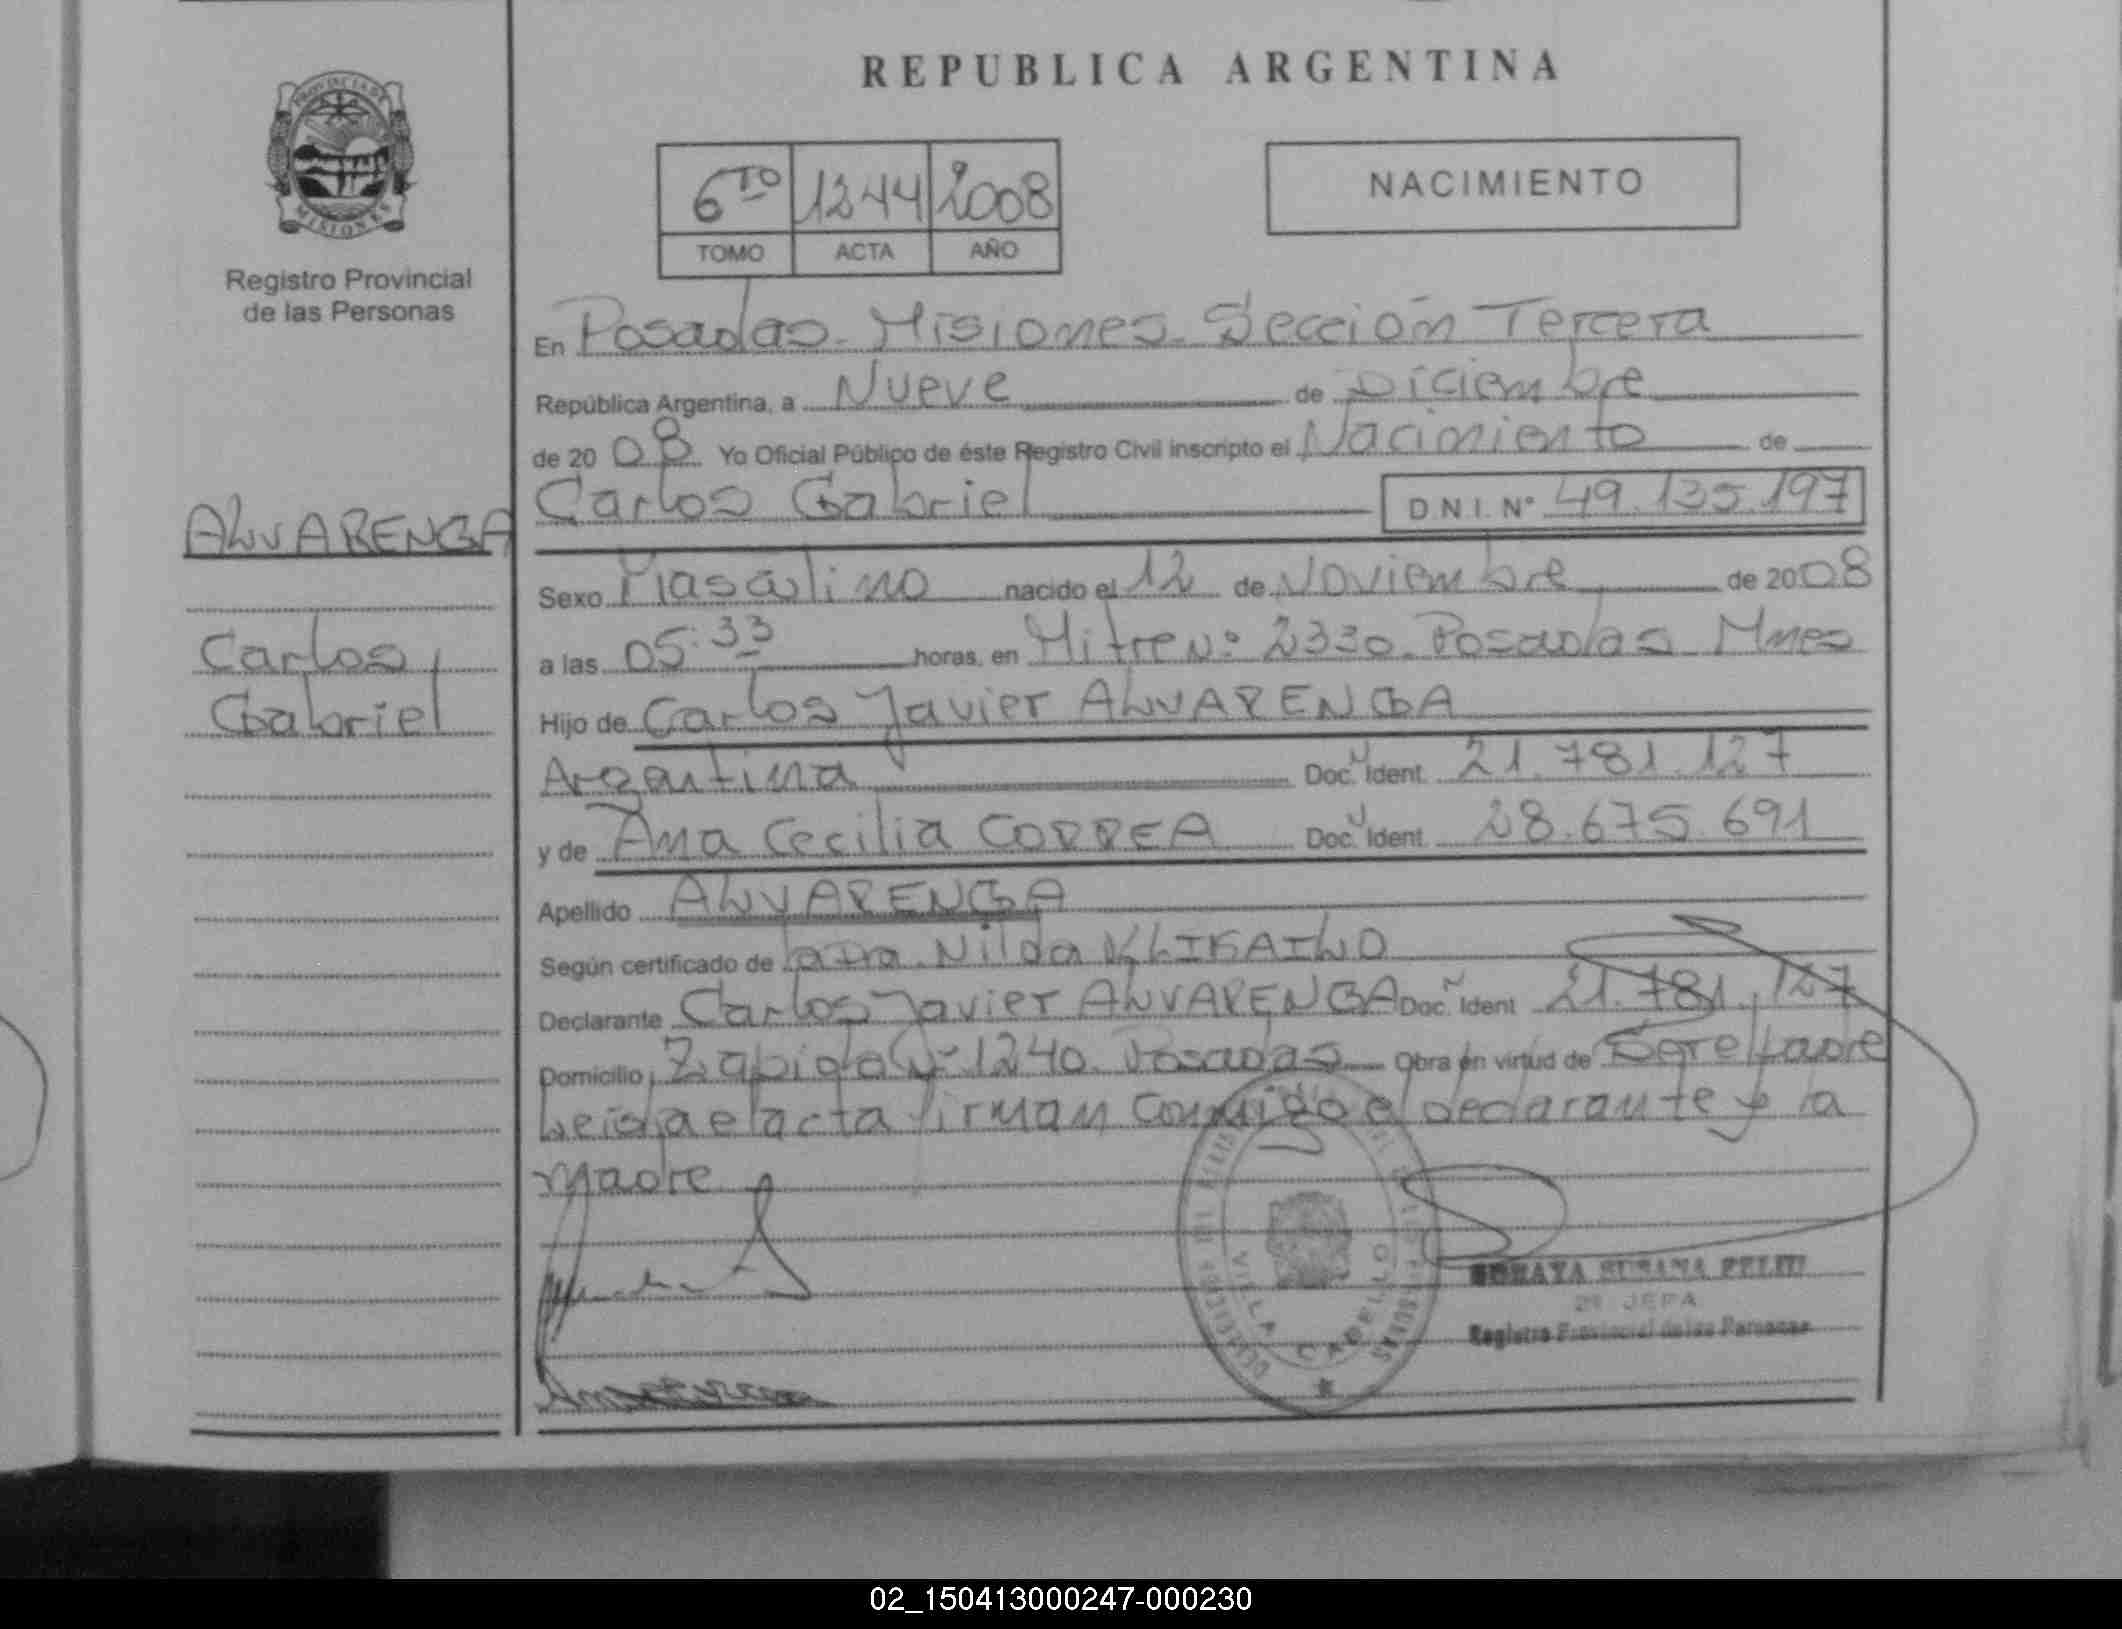 REPUBLICA ARGENTINA
PROVINCIA DE
MISIONES
Registro Provincial
de las Personas
6TO 1244 2008
TOMO ACTA AÑO
NACIMIENTO
En Posadas. Misiones. Sección Tercera
República Argentina, a Nueve de Diciembre
de 2008 Yo Oficial Público de éste Registro Civil inscripto el Nacimiento de
Carlos Gabriel D.N.I. N° 49.135.197
ALVARENGA
Carlos
Gabriel
Sexo Masculino nacido el 12 de Noviembre de 2008
a las 05:33 horas, en Mitre N° 2330. Posadas Mnes
Hijo de Carlos Javier ALVARENGA
Argentina Doc. Ident. 21.781.127
y de Ana Cecilia CORREA Doc. Ident. 28.675.691
Apellido ALVARENGA
Según certificado de la Dra. Nilda
Declarante Carlos Javier ALVARENGA Doc. Ident 21.781.127
Domicilio Zapiola N° 1240. Posadas Obra en virtud de Ser el Padre
Leida el acta firman conmigo el declarante y la
Madre
VILLA CABELLO
SORAYA SUSANA
2º JEFA
Registro Provincial de las Personas
02_150413000247-000230